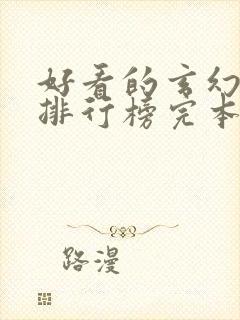 好看的玄幻
排行榜完本
路漫